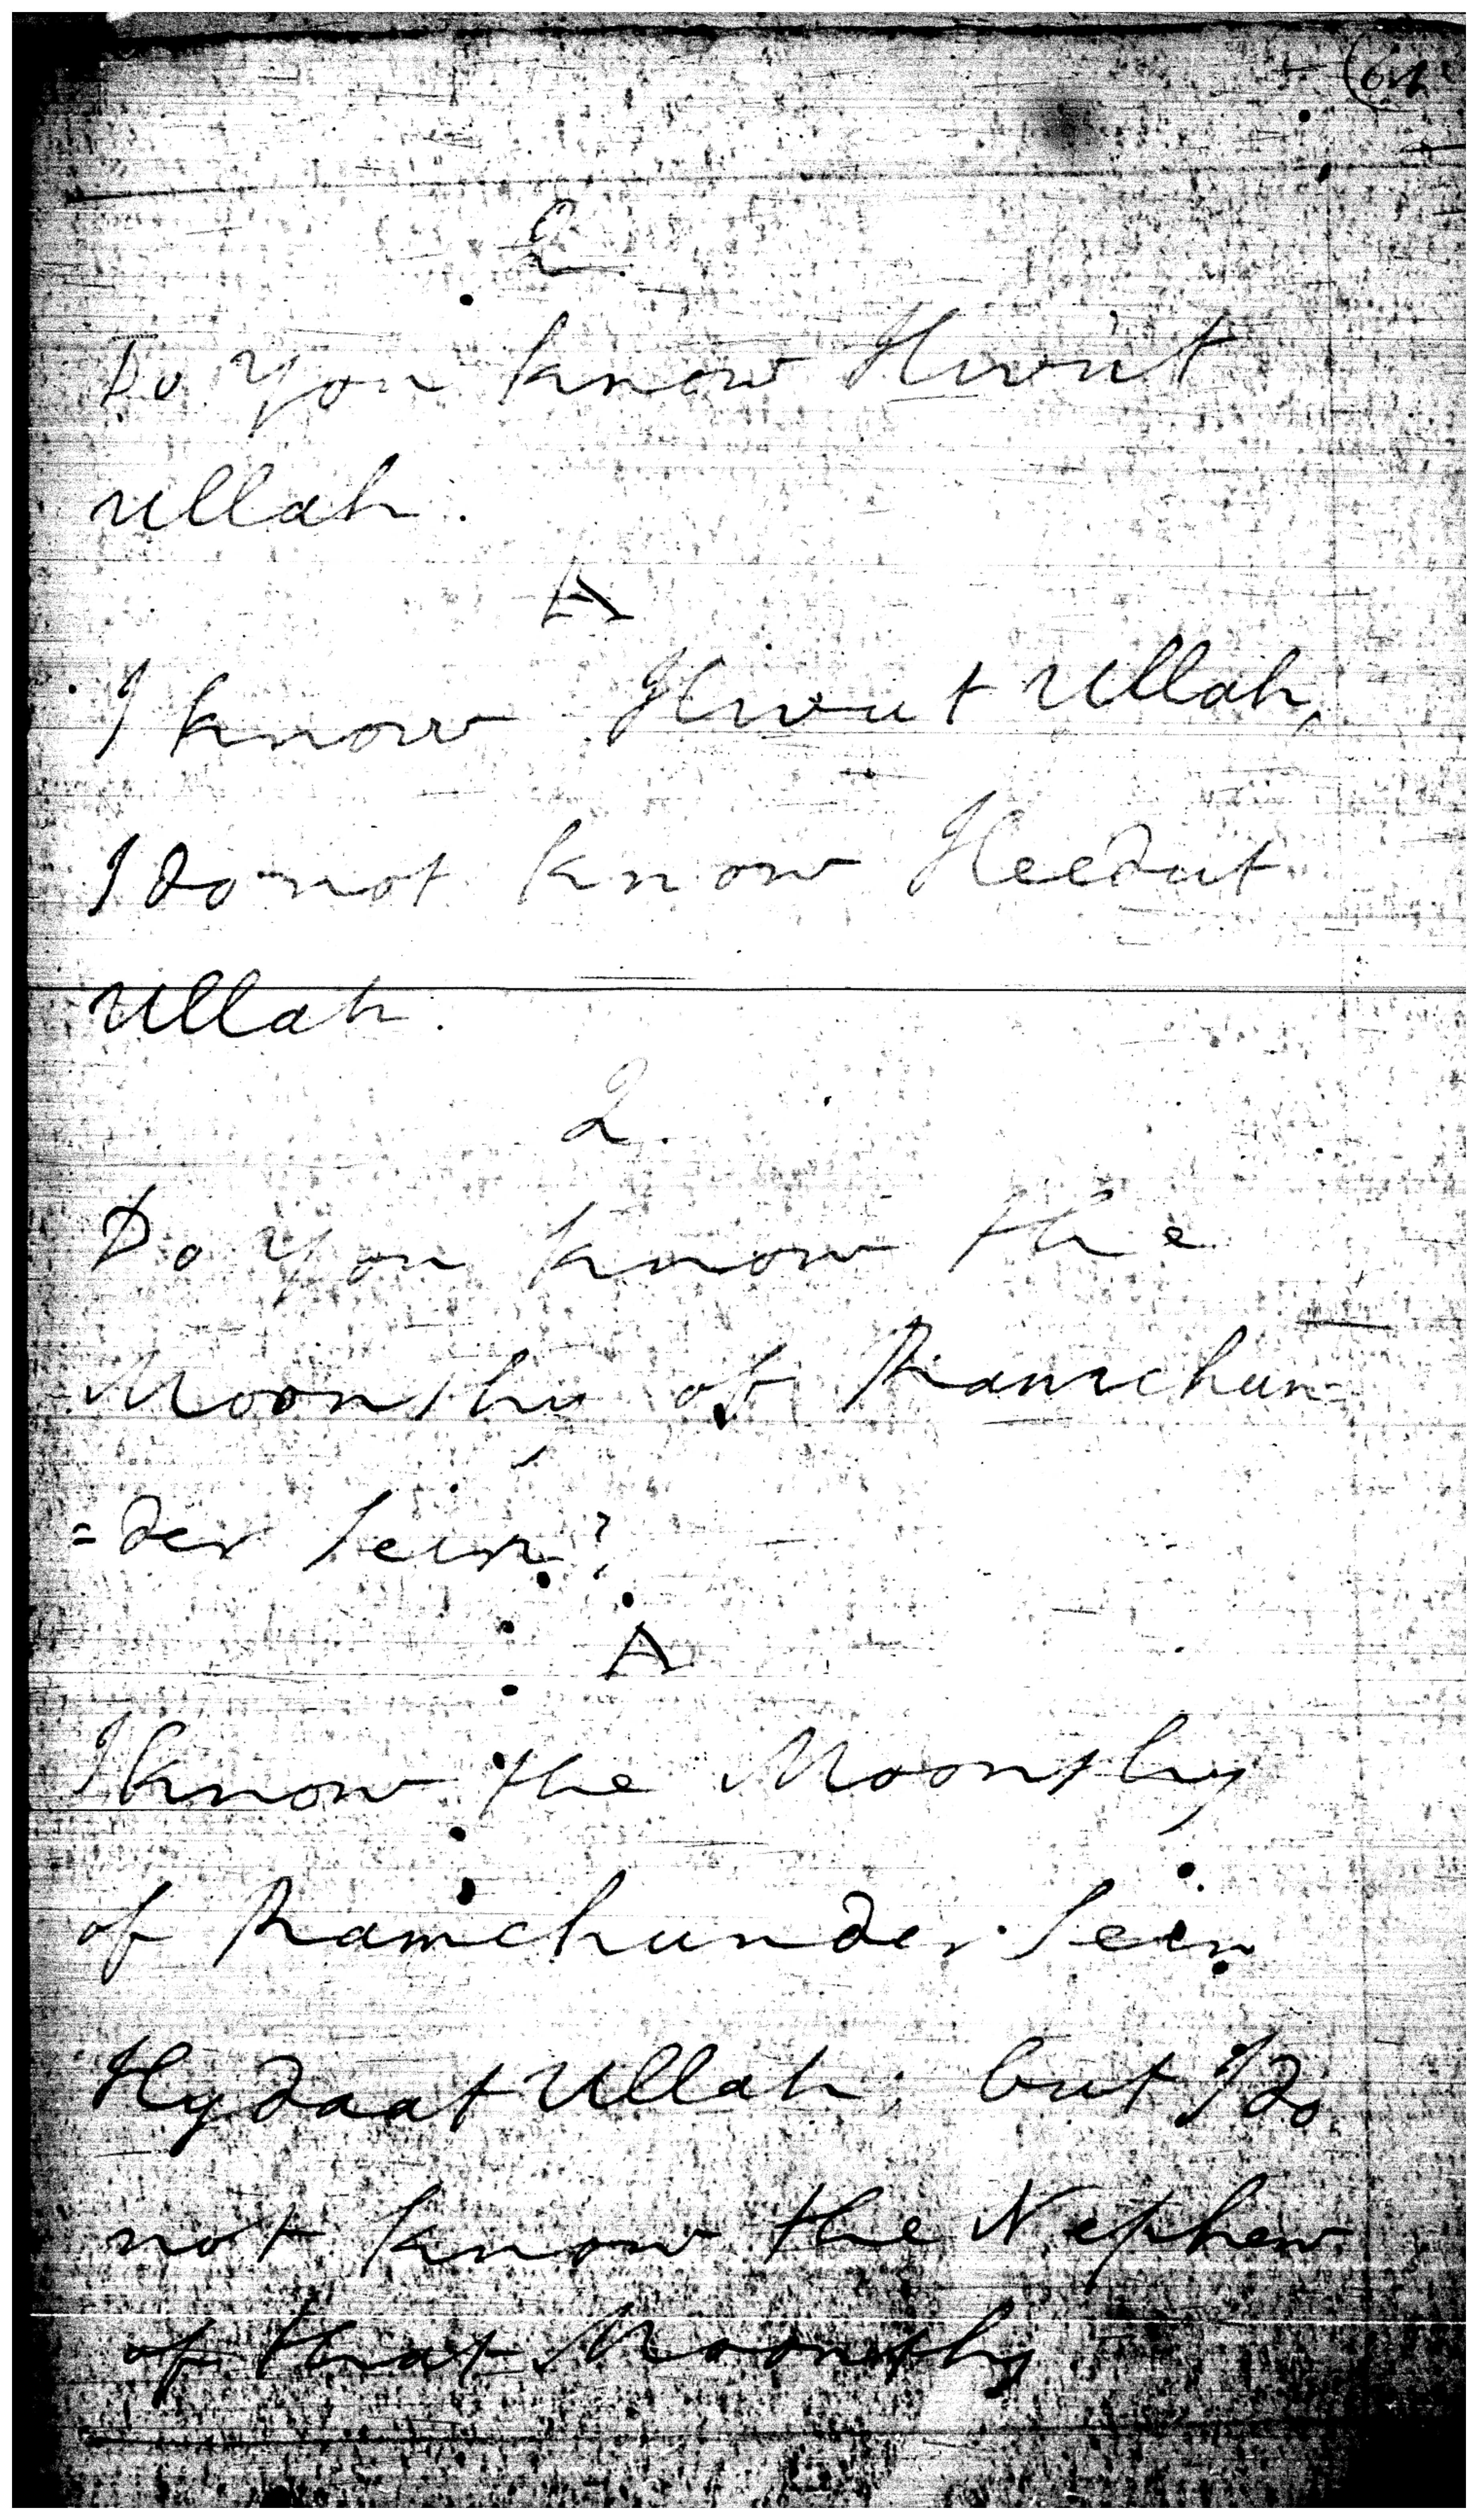 Q
Do you know Hiwut
ullah.
A
I know Hiwut Ullah,
I do not know Heedut
Ullah.
Q.
Do you know the
Moonshy of Ramchun
=der Sein?
A
I know the Moonshy
of Ramchunder Sein
Hydaat Ullah; but I do
not know the Nephew
of that Moonshy